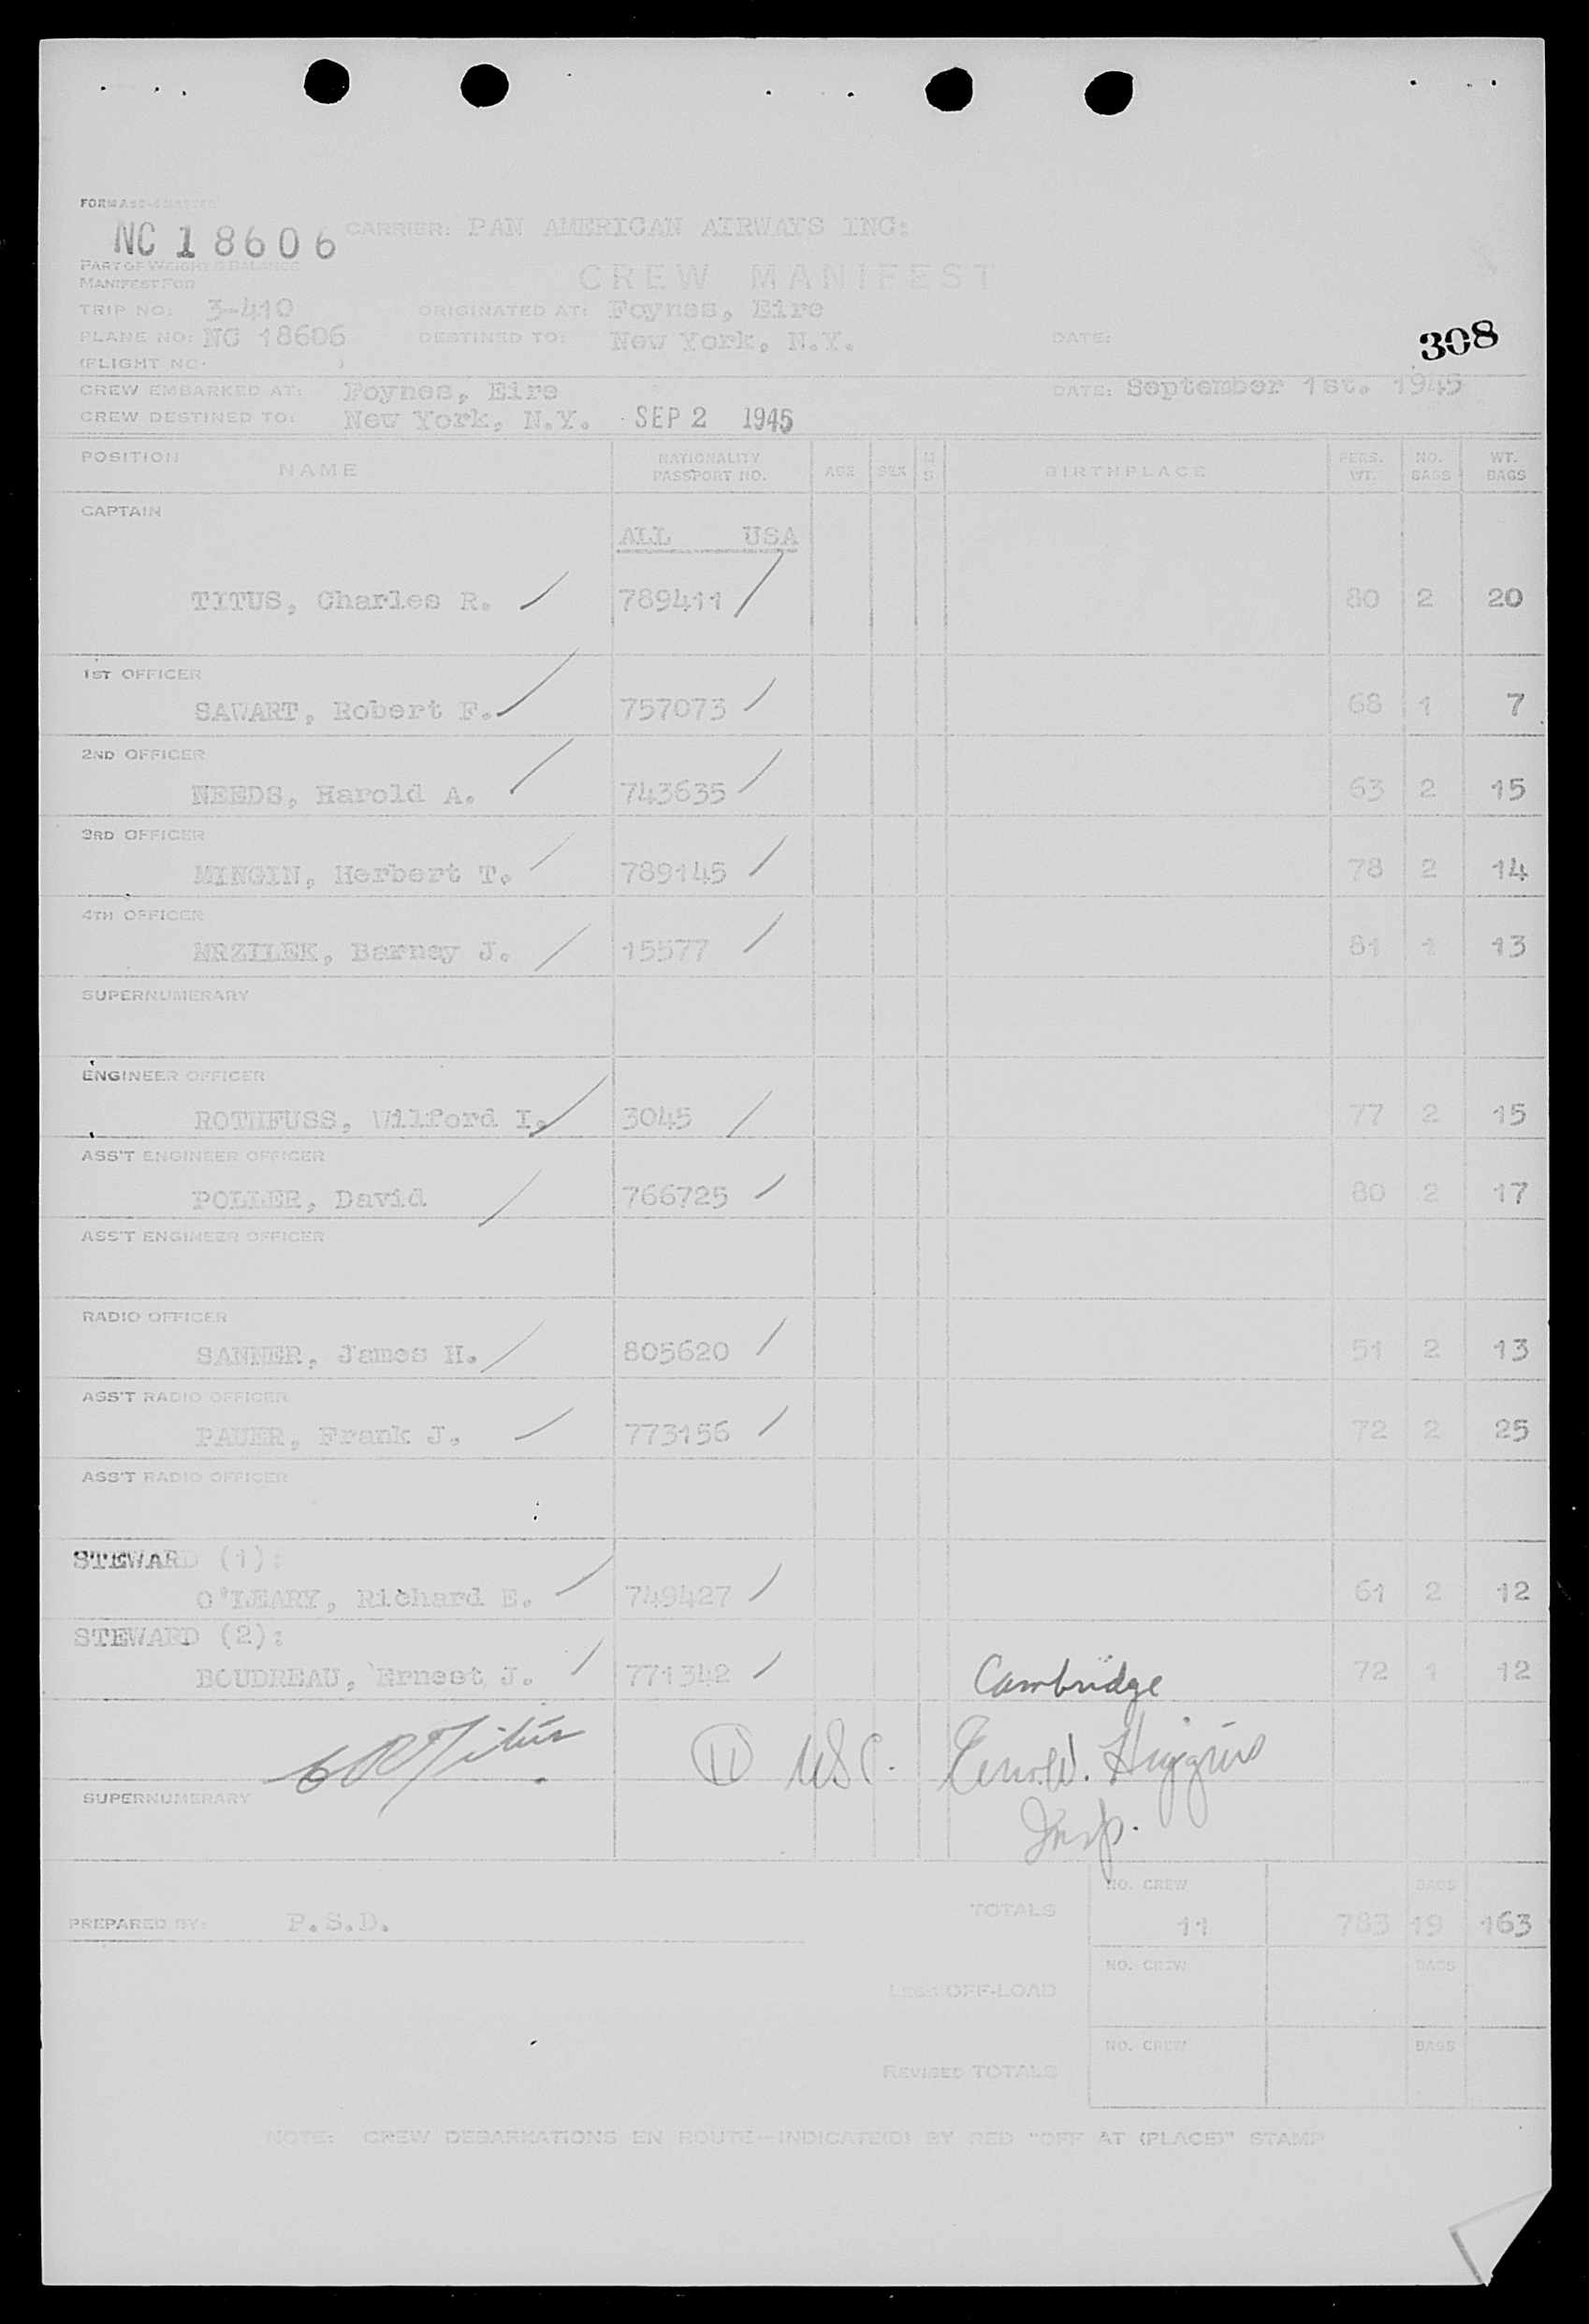 NC 18606 CARRIER: PAN AMERICAN AIRWAYS INC:
PART OF WEIGHT & BALANCE
MANIFEST FOR
CREW MANIFEST
TRIP NO: 3-410 ORIGINATED AT: Foynes, Eire
PLANE NO: NC 18606 DESTINED TO: New York, N.Y. DATE: 308
(FLIGHT NO. )
CREW EMBARKED AT: Foynes, Eire DATE: September 1st. 1945
CREW DESTINED TO: New York, N.Y. SEP 2 1945
POSITION NAME NATIONALITY PASSPORT NO. AGE SEX M S BIRTHPLACE PERS. WT. NO. BAGS WT. BAGS
CAPTAIN
ALL USA
TITUS, Charles R. 789411 80 2 20
1ST OFFICER
SAWART, Robert F. 757073 68 1 7
2ND OFFICER
NEEDS, Harold A. 743635 63 2 15
3RD OFFICER
MINGIN, Herbert T. 789145 78 2 14
4TH OFFICER
MRZILEK, Barney J. 15577 81 1 13
SUPERNUMERARY
ENGINEER OFFICER
ROTHFUSS, Wilford I. 3045 77 2 15
ASS'T ENGINEER OFFICER
POLLER, David 766725 80 2 17
ASS'T ENGINEER OFFICER
RADIO OFFICER
SANNER, James H. 805620 51 2 13
ASS'T RADIO OFFICER
PAUER, Frank J. 773156 72 2 25
ASS'T RADIO OFFICER
STEWARD (1):
O'LEARY, Richard E. 749427 61 2 12
STEWARD (2):
BOUDREAU, Ernest J. 771342 Cambridge 72 1 12
CR Titus 11 USC. W. Higgins
SUPERNUMERARY
Insp.
NO. CREW BAGS
PREPARED BY: P.S.D. TOTALS 11 783 19 163
NO. CREW BAGS
LESS OFF-LOAD
NO. CREW BAGS
REVISED TOTALS
NOTE: CREW DEBARKATIONS EN ROUTE—INDICATE(D) BY RED "OFF AT (PLACE)" STAMP